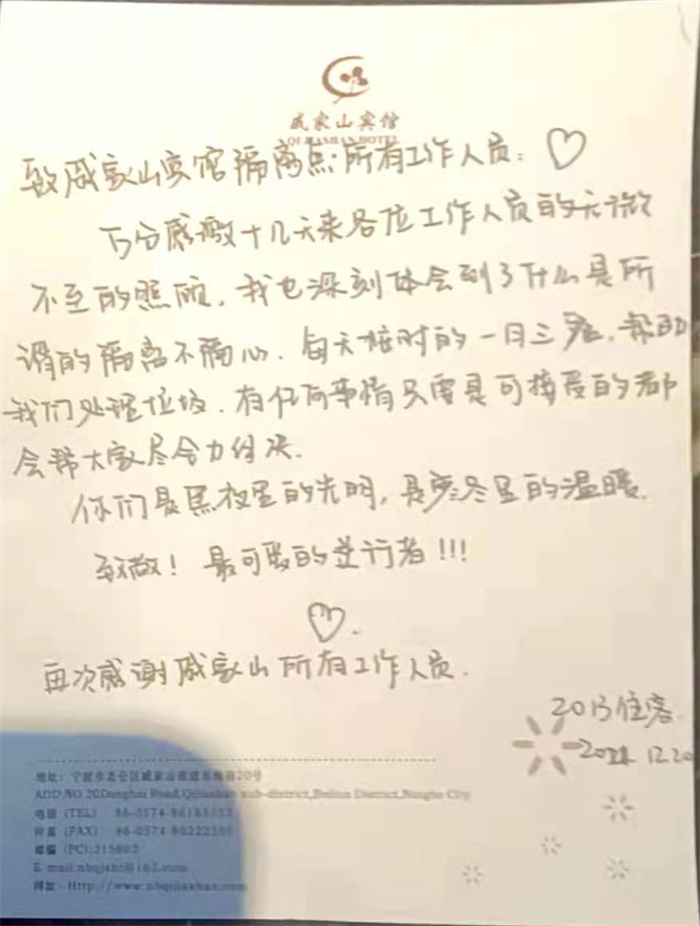 戚家山宾馆
QI JIASHAN HOTEL
致戚家山宾馆隔离点所有工作人员：
万分感激十几天来各位工作人员的无微
不至的照顾，我也深刻体会到了什么是所
谓的隔离不隔心，每天按时的一日三餐，帮助
我们处理垃圾，有任何事情只要是可接受的都
会帮大家尽全力解决.
你们是黑夜里的光明，是寒冬里的温暖.
致敬！最可爱的逆行者！！！
再次感谢戚家山所有工作人员.
2013住客
2021.12.20
地址：宁波市北仑区戚家山街道东海路20号
ADD:NO.20Donghai Road,Qijiashan sub-district,Beilun District,Ningbo City
电话 (TEL) 86-0574-86185333
传真 (FAX) 86-0574-86222380
邮编 (PC):315803
E-mail:nbqjsbg@163.com
网址：Http://www.nbqijiashan.com